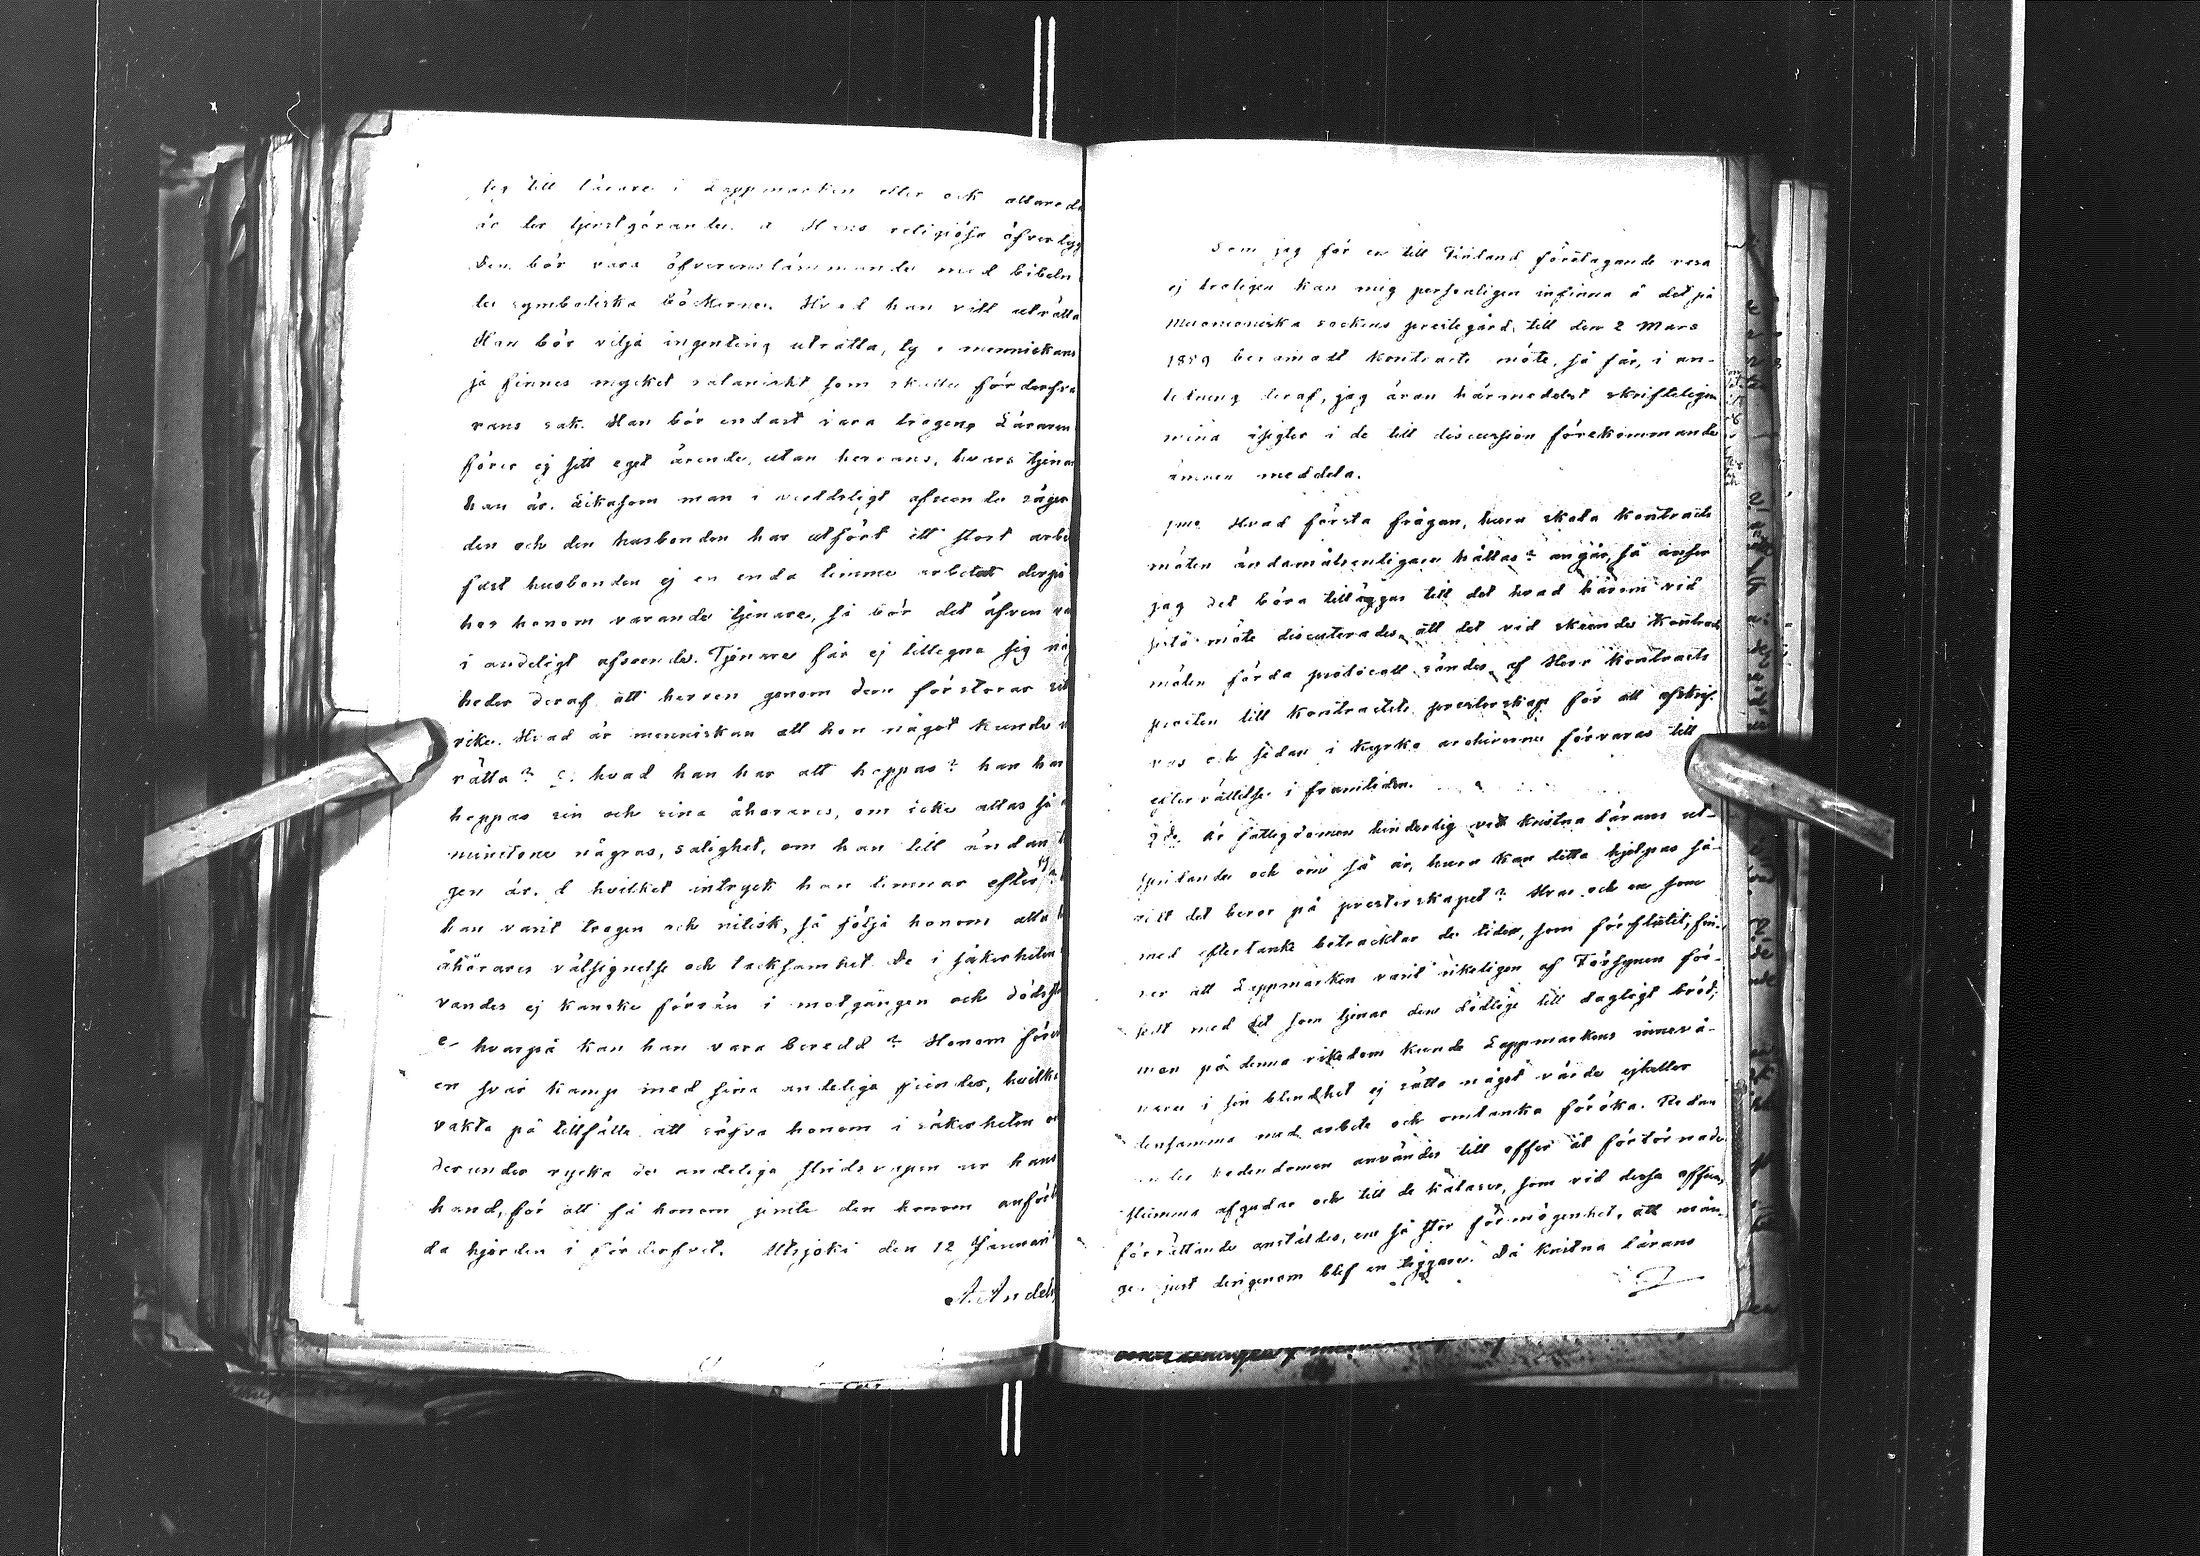 sig till lärare i Lappmarken eller ock allareda
är der tjenstgörande. a Hans religiösa öfverlyg
den bör vara öfverensstämmande med bibeln
de symboliska böckerne. Hvad han vill uträtta
Han bör vilja ingenting uträtta, ty i menniskans
jo finnes mycket sataniskt som skulle förderfva
rans sak. Han bör endast vara trogen. Läraren
förer ej sitt eget ärende, utan herrans, hvars tjena
han är. Likasom man i verldsligt afseende säger
den och den husbonden har utfört ett stort arbe
fast husbonden ej en enda timme arbetat derpå
hos honom varande tjenare, så bör det äfven va
i andeligt afseende. Tjenare får ej tillegna sig nå
heder deraf att herren genom dem förstorar sit
rike. Hvad är menniskan att hon något kunde u
rätta? c. hvad han har att hoppas? han har
hoppas sin och sina åhorares, om icke allas så
minstone någras, salighet, om han till ändan t
gen är. d hvilket intryck han lemnar efter sig?
han varit trogen och nitisk, så följa honom alla
åhörares välsignelse och tacksamhet. De i säkerheten
vandes ej kanske förrän i motgången och dödsst
e- hvarpå kan han vara beredd? Honom före
en svår kamp med sina andeliga fiender, hvilka
vakta på tillfälle att söfva honom i säkerheten o
derunder rycka de andeliga stridsvapen ur hans
hand, för att få honom jemte den honom anför
da hjorden i förderfvet. Utsjoki den 12 Januari
A. Andel
Som jag för en till Finland företagande resa
ej troligen kan mig personligen infinna å det på
Muonioniska sockens prestegård till den 2 Mars
1859 beramade kontracts möte, så får, i an-
ledning deraf, jag äran härmedelst skrifteligen
mina åsigter i de till discussion förekommande
ämnen meddela.
1mo Hvad första frågan, huru skola kontracts
möten ändamålsenligare hållas? angår, så anser
jag det böra tilläggas till det hvad härom vid
sista möte discuterades, att det vid skeende kontracts
möten förda protocoll sändes af Herr kontracts
prosten till kontractets presterskap för att afskrif-
vas och sedan i kyrko archiverne förvaras till
efterrättelse i framtiden.
2do Är fattigdomen hinderlig vid kristna lärans ut-
spridande och om så är, huru kan detta hjelpas så-
vidt det beror på presterskapet? Hvar och en som
med eftertanke betracktar de tider, som förflutit, fin-
ner att Lappmarken varit rikeligen af Försynen för-
sedt med det som tjenar den dödlige till dagligt bröd;
men på denna rikedom kunde Lappmarkens innevå-
nare i sin blindhet ej sätta något värde ejheller
densamma med arbete och omtanka föröka. Redan
under hedendomen användes till offer åt förtörnade
stumma afgudar och till de kalaser, som vid dessa offers
förrättande anställdes, en så stor förmögenhet, att mån-
ge just derigenom blef en tiggare. Då kristna lärans